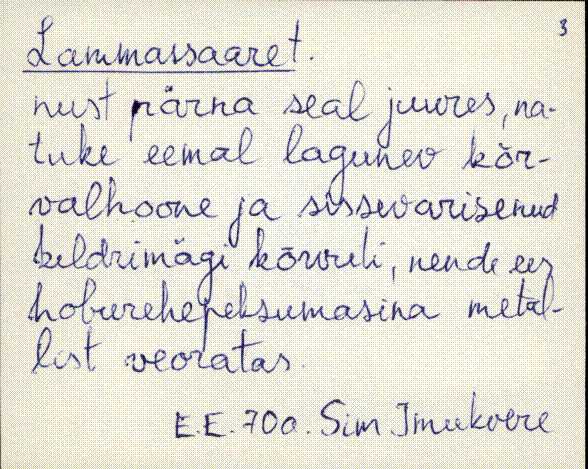 3
Lammassaaret.
nust pärna seal juures, na-
tuke eemal lagunev kõr-
valhoone ja sissevarisenud
keldrimägi kõrvuti, nende ees
hoburehepeksumasina metal-
list veoratas.
E.E. 70a. Sim Imukvere